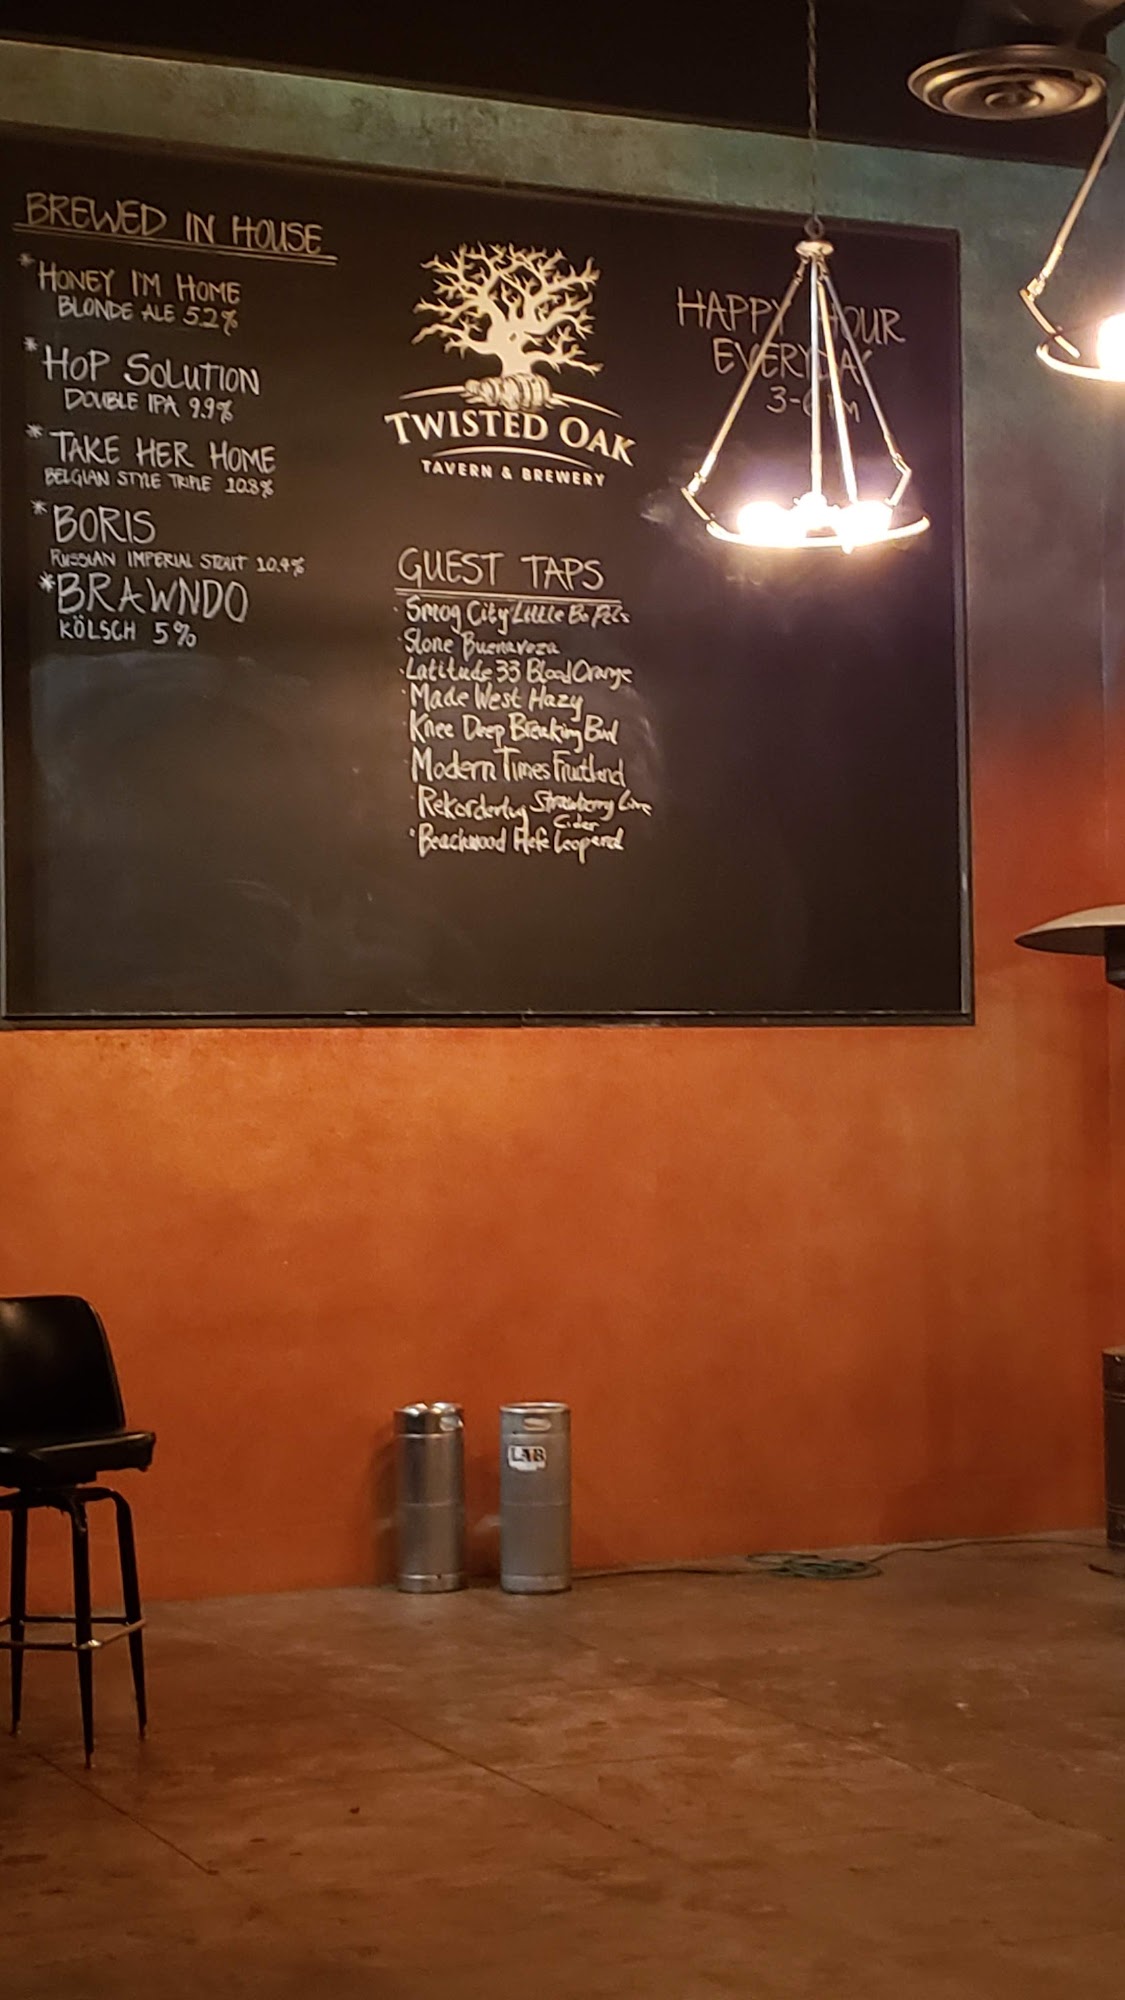 BREWED IN HOUSE
* HONEY I'M HOME
BLONDE ALE 5.2%
* HOP SOLUTION
DOUBLE IPA 9.9%
* TAKE HER HOME
BELGIAN STYLE TRIPLE 10.8%
* BORIS
RUSSIAN IMPERIAL STOUT 10.4%
* BRAWNDO
KÖLSCH 5%
TWISTED OAK
TAVERN & BREWERY
GUEST TAPS
· Smog City Little Bo Pils
· Stone Buenaveza
· Latitude 33 Blood Orange
· Made West Hazy
· Knee Deep Breaking Bud
· Modern Times Fruitland
· Rekorderlig Strawberry Lime
Cider
· Beachwood Hefe Leopard
HAPPY HOUR
EVERYDAY
3-6PM
LAB